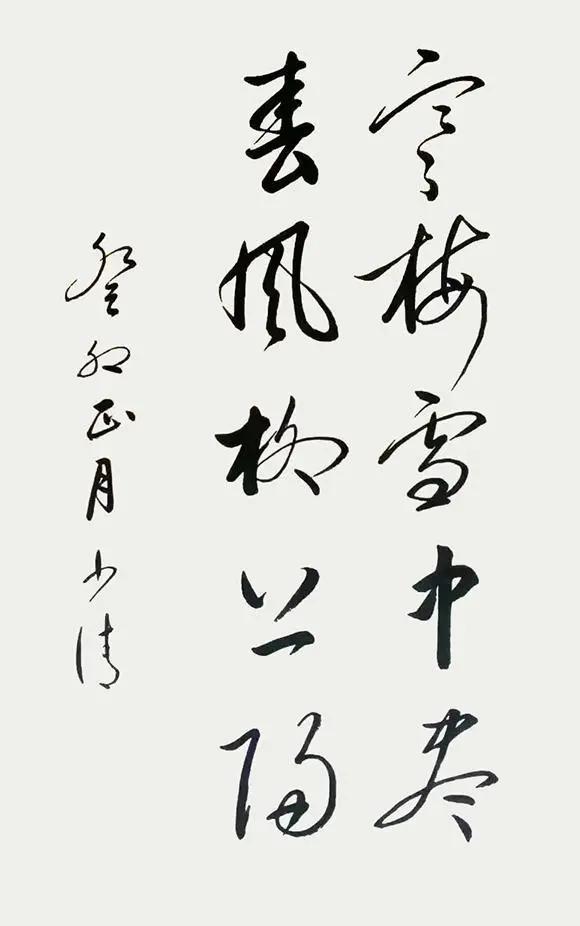 寒梅雪中盡
春風柳上歸
癸卯正月少清